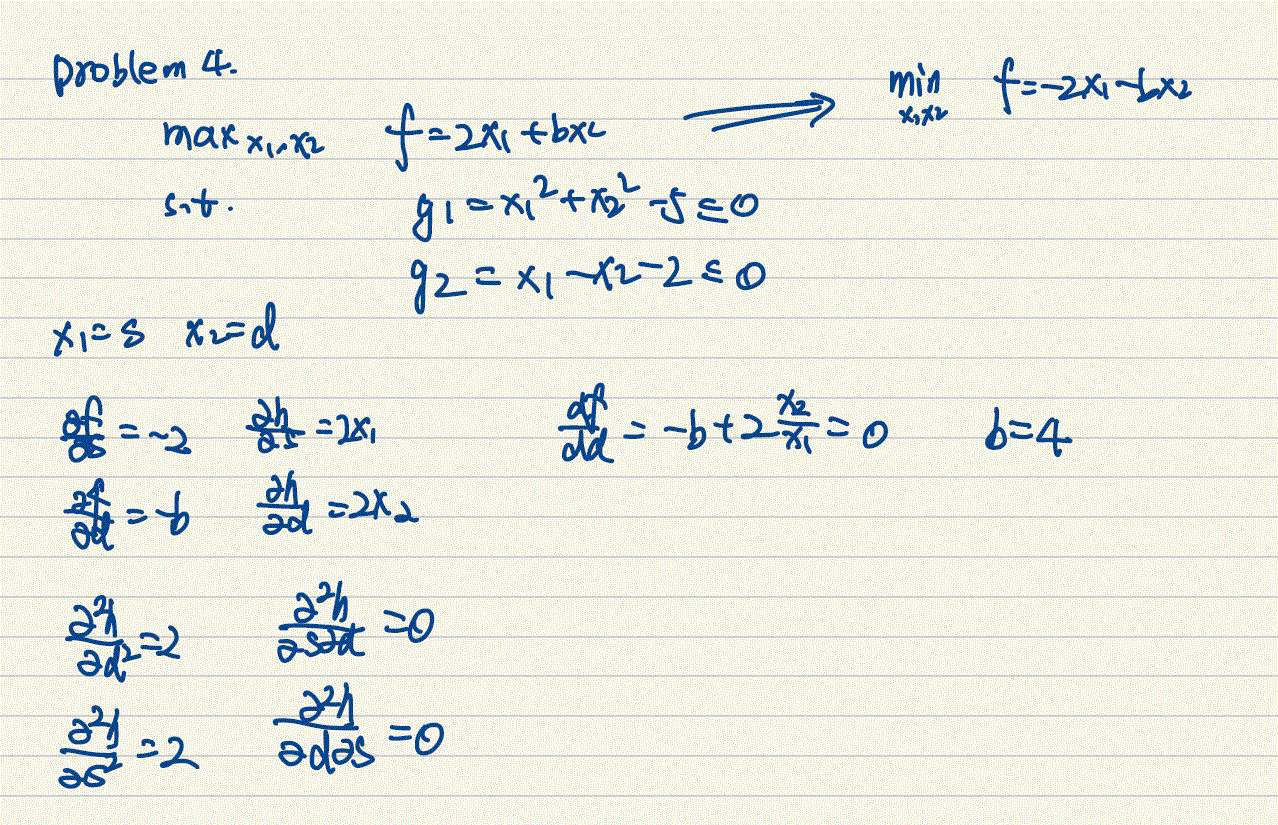 problem 4.
max x₁,x₂ f=2x₁+bx₂ ⟹ min x₁x₂ f=-2x₁-bx₂
s.t. g₁=x₁²+x₂²-5≤0
g₂=x₁-x₂-2≤0
x₁=s x₂=d
∂f/∂s=-2 ∂h/∂s=2x₁ df/dd=-b+2x₂/x₁=0 b=4
∂f/∂d=-b ∂h/∂d=2x₂
∂²h/∂d²=2 ∂²h/∂s∂d=0
∂²h/∂s²=2 ∂²h/∂d∂s=0